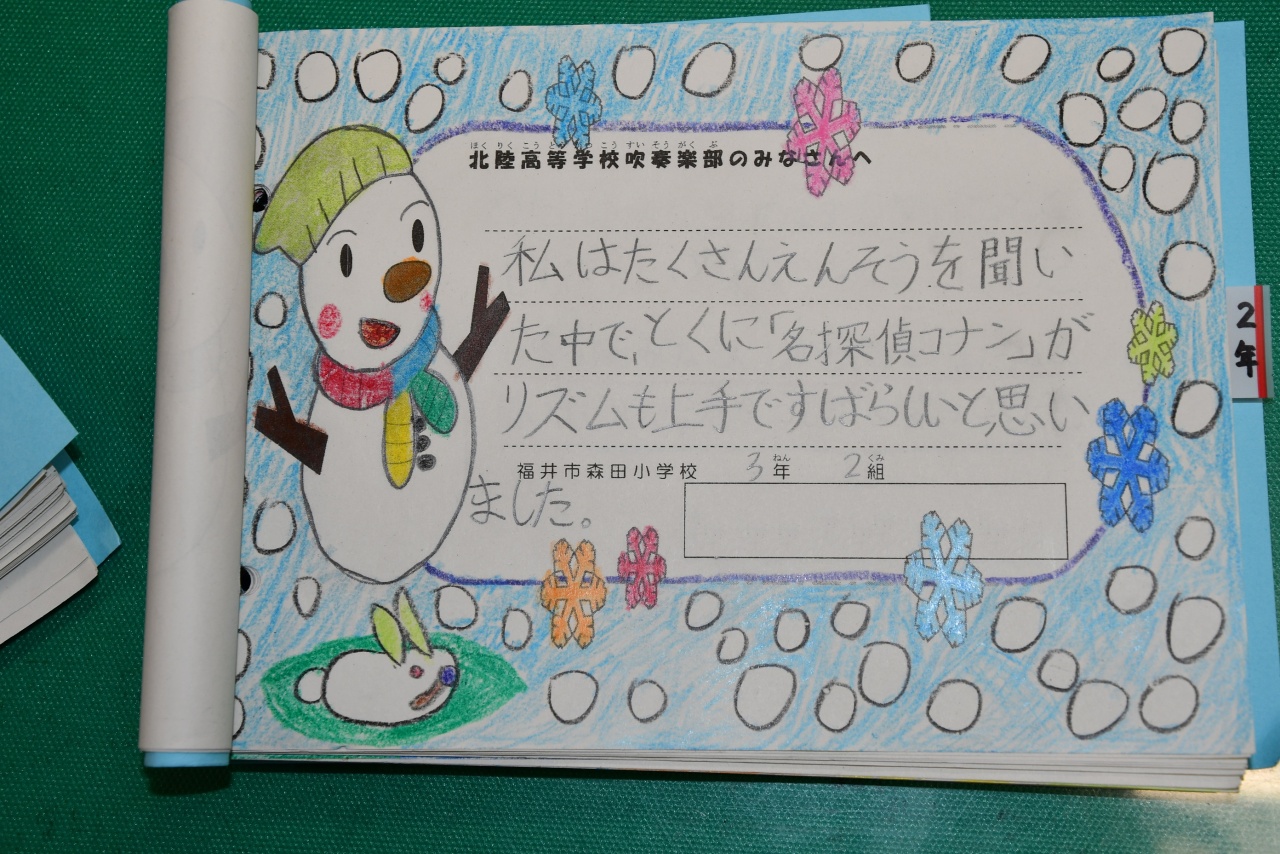 北陸高等学校吹奏楽部のみなさんへ
私はたくさんえんそうを聞い
た中で、とくに「名探偵コナン」が
リズムも上手ですばらしいと思い
福井市森田小学校 3年 2組
ました。
2年